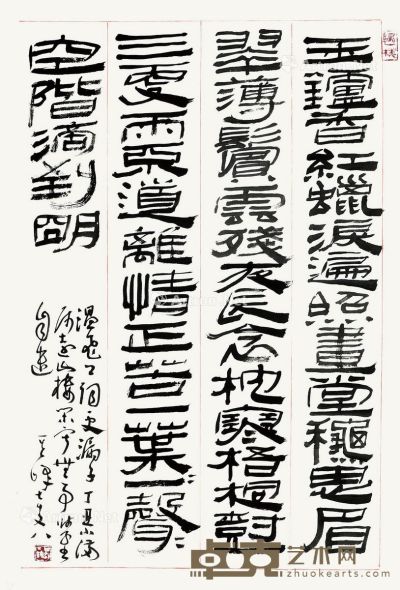 玉鑪香紅蠟淚遍照畫堂穐思眉
翠薄鬢雲殘夜長衾枕寒梧桐樹
三更雨不道離情正苦一葉〻一聲〻
空階滴到明
温飛卿詞更漏子丁丑小满
山樓
自遣
艺术网
zhuokearts.com